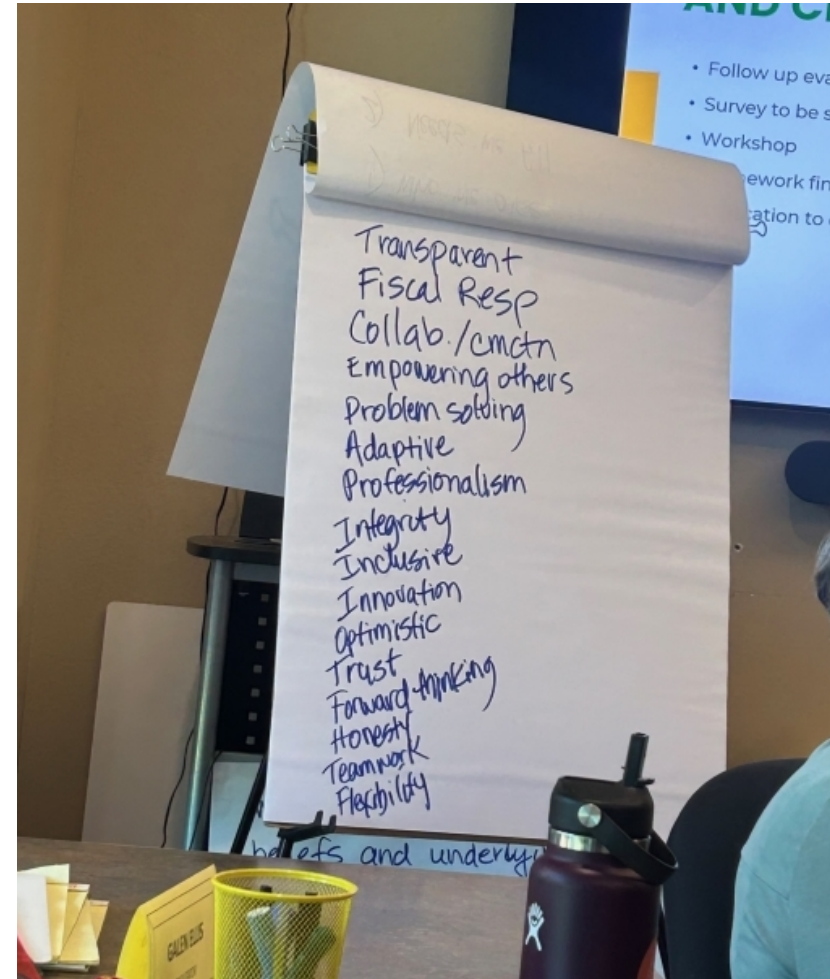 AND
• Follow up
• Survey to be
• Workshop
Transparent
Fiscal Resp
Collab./cmctn
Empowering others
Problem solving
Adaptive
Professionalism
Integrity
Inclusive
Innovation
Optimistic
Trust
Forward thinking
Honesty
Teamwork
Flexibility
and
GALEN ELLIS